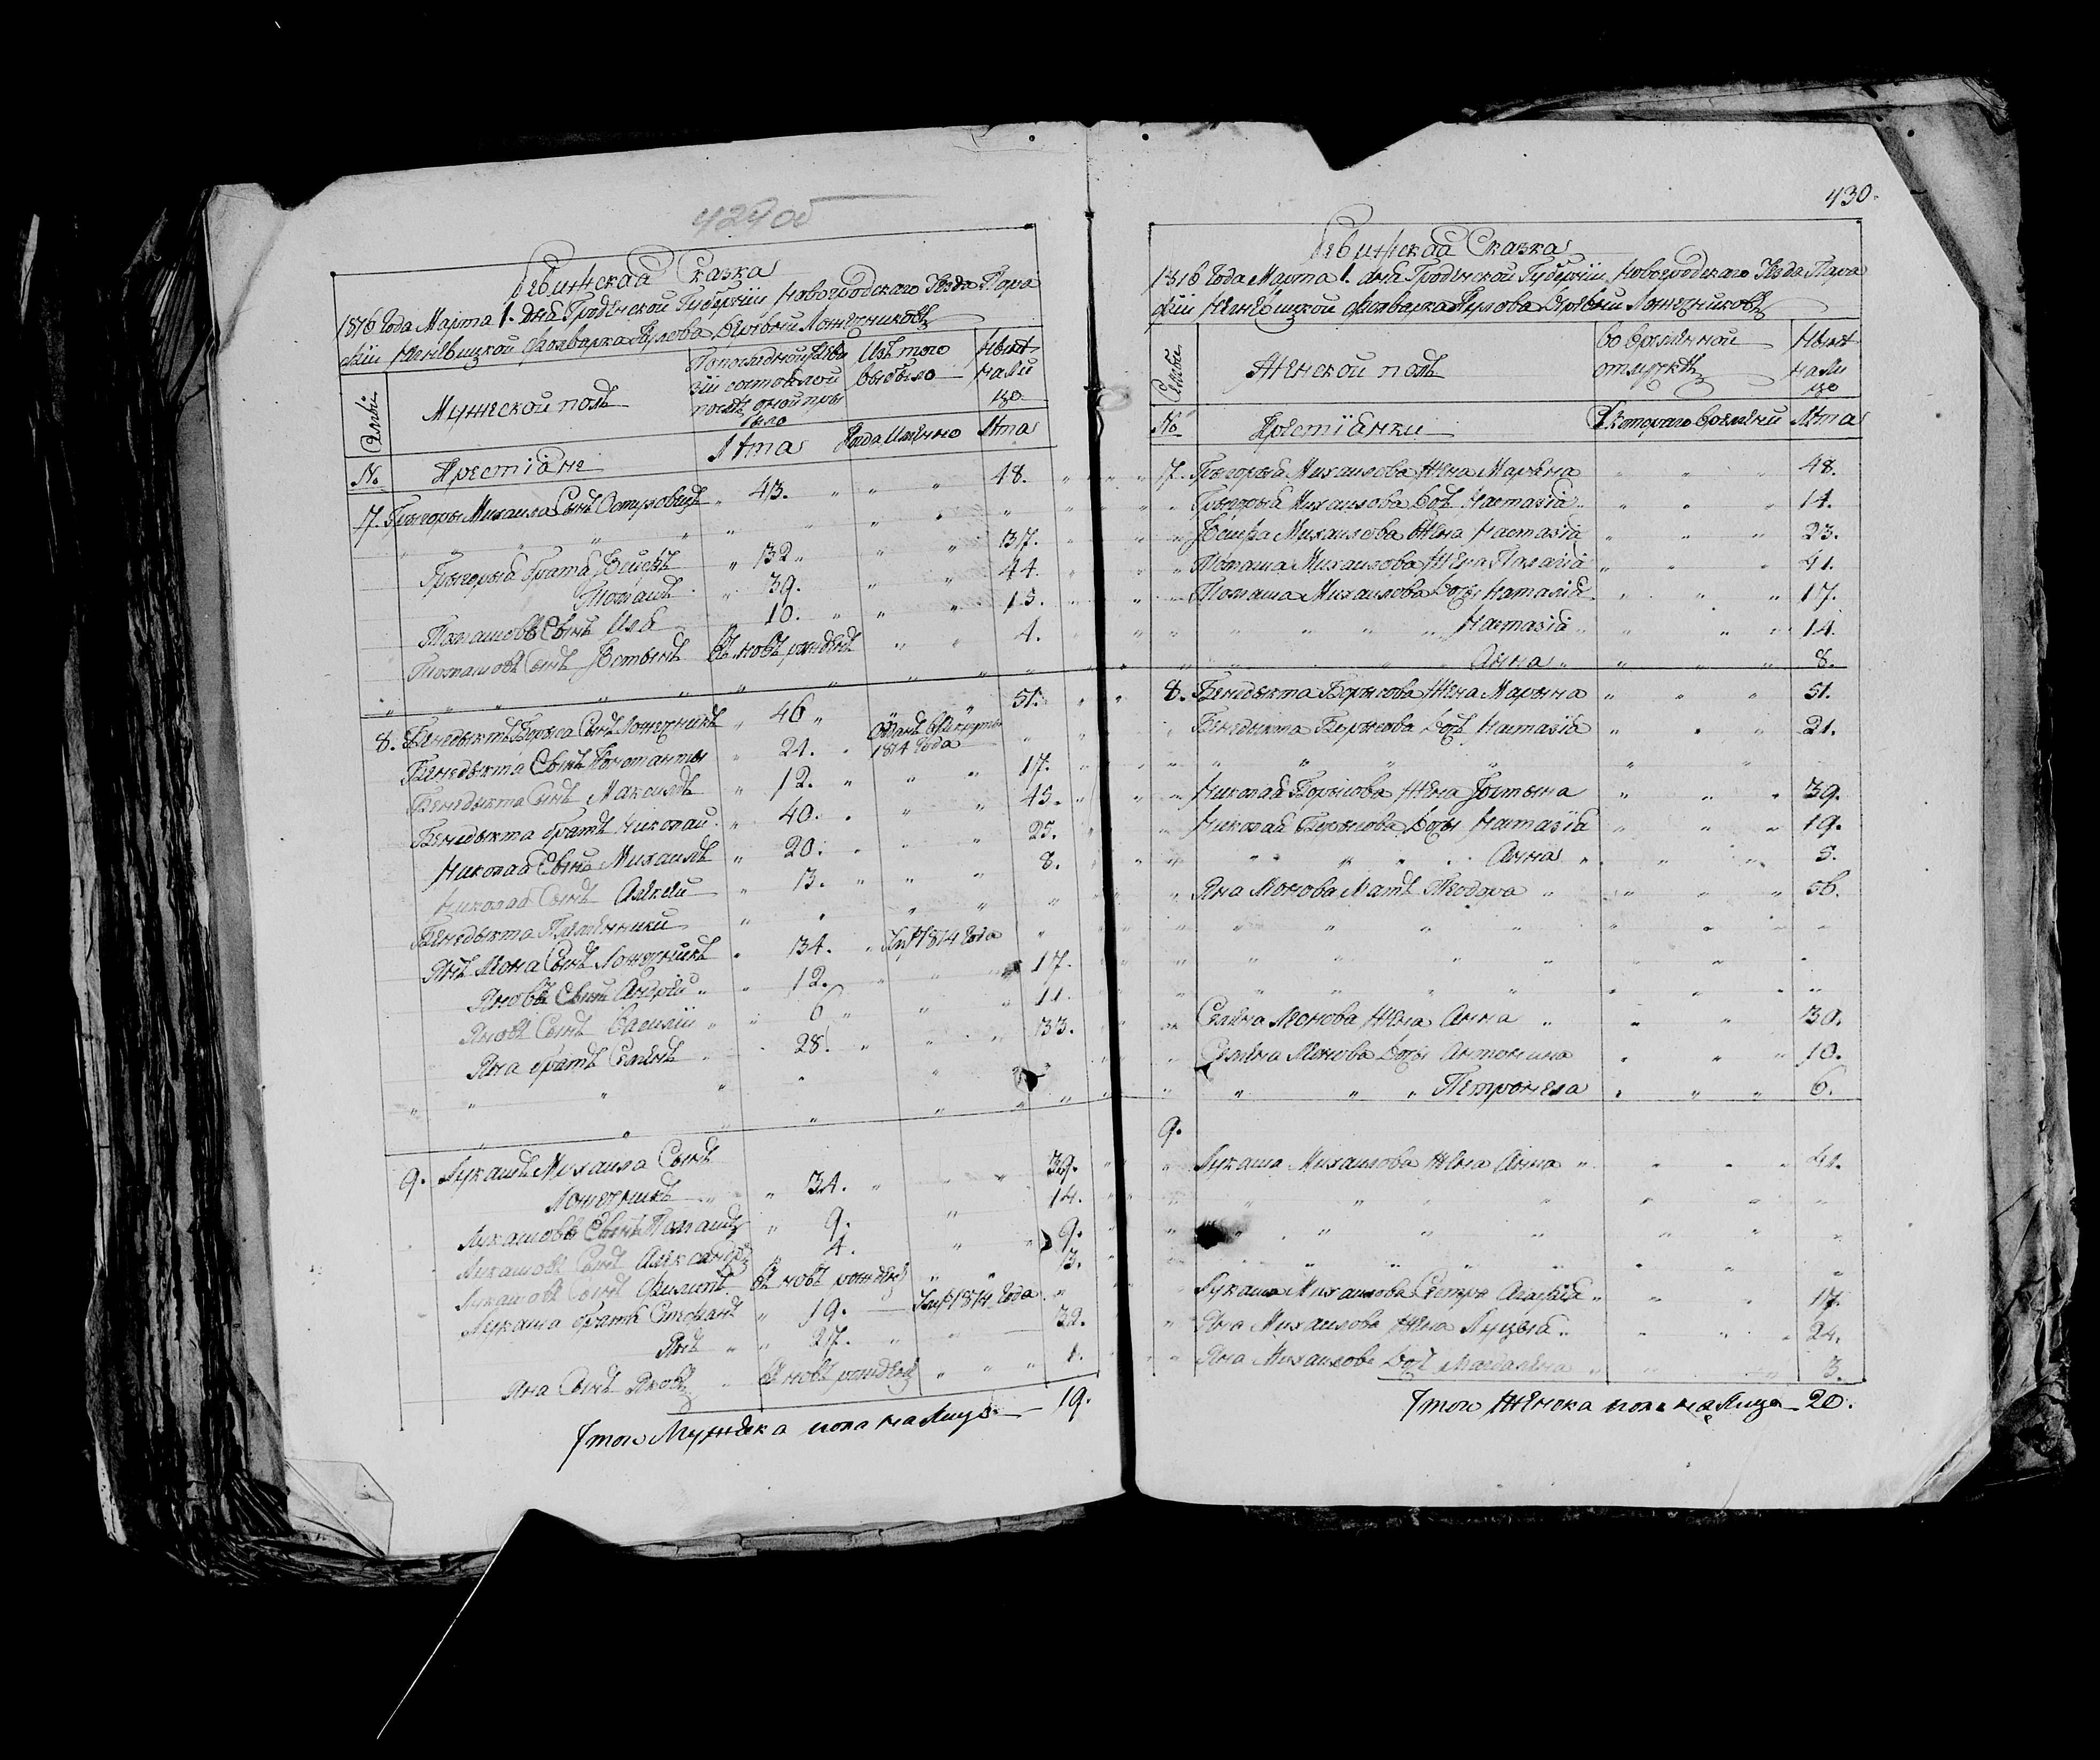 429 об
Ревижская Сказка
1816 Года Марта 1. дня Гроднской Губернїи Новогродского Уезда Пара
фїи Негневицкой фолварка Деревни Ложечниковъ
Семьи
Мужеской полъ
По последной Реви
зїи состояло и
после оной при
было
Изъ того
выбыло
Ныне
на Ли
цо
№
Крестїяне
Лѣта
Когда Именно
Лѣта
7. Грыгоры Михаила Сынъ 43. 48.
Грыгорыя братъ 32. 37.
Томашъ 39. 44.
Томашовъ Сынъ Илья 10. 15.
Томашовъ Сынъ Юстынъ В новъ рожденъ 4.
8. Бенедыктъ Борыса Сынъ Ложечникъ 46 51.
Бенедыкта Сынъ Константы 21. Отданъ в Рекруты
1814 Года
Бенедыкта Сынъ Максимъ 12. 17.
Бенедыкта братъ Николай 40. 45.
Николая Сынъ Михаилъ 20. 25.
Николая Сынъ Алексей 3. 8.
Бенедыкта Племенники
Янъ Леона Сынъ Ложечникъ 34. Умръ 1814 Года
Яновъ Сынъ Андрей 12. 17.
Яновъ Сынъ Василїй 6 11.
Яна братъ Семенъ 28. 33.
9. Лукашъ Михаила Сынъ
Ложечникъ 34. 39.
Лукашовъ Сынъ Томашъ 9. 14.
Лукашовъ Сынъ Александръ 4. 9.
Лукашовъ Сынъ Филипъ В новъ рожденъ 3.
Лукаша братъ Стефанъ 19. Умръ 1814 Года
Янъ 27. 32.
Яна Сынъ Яковъ В новъ рожденъ 1.
Итого Мужеска пола на Лицо 19.
430.
Ревижская Сказка
1816 Года Марта 1. дня Гроднской Губернїи Новогродского Уезда Пара
фїи Негневицкой фолварка Деревни Ложечниковъ
Семьи
Женской полъ
Во временной
отлучке
Ныне
на Ли
цо
№
Крестїянки
С котораго времени
Лѣта
7. Грыгорыя Михаилова Жена Марьяна 48.
Грыгорыя Михаилова Дочь Настазїя 14.
Михаилова Жена Настазїя 23.
Томаша Михаилова Жена Палагїя 41.
Томаша Михаилова Дочы Наталїя 17.
Настазїя 14.
Анна 8.
8. Бенедыкта Борысова Жена Марына 51.
Бенедыкта Борысова Дочь Настазїя 21.
Николая Борысова Жена Юстына 39.
Николая Борысова Дочы Настазїя 19.
Анна 5.
Яна Леонова Мать Теодора 56.
Семена Леонова Жена Анна 30.
Семена Леонова Дочы Антонина 10.
Петронеля 6.
9.
Лукаша Михаилова Жена Анна 41.
Лукаша Михаилова Сестра Агафїя 17.
Яна Михаилова Жена Луцыя 24.
Яна Михаилова Дочь Магдалена 3.
Итого Женска пола на Лицо 20.